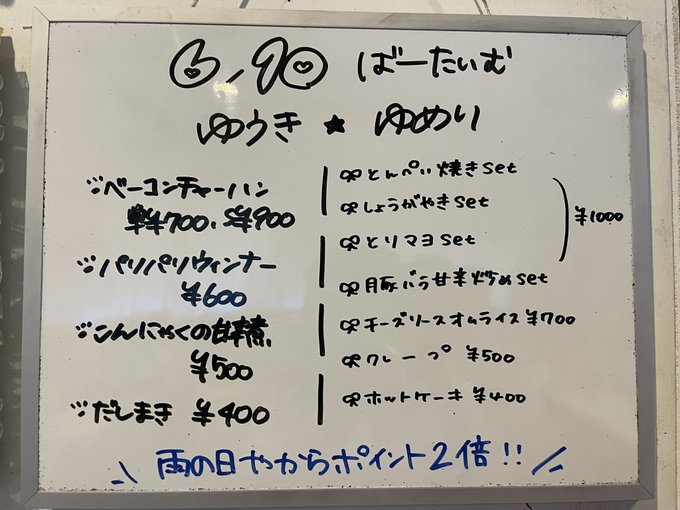 6/10 ばーたいむ
ゆうき ★ ゆめり
ベーコンチャーハン
¥700、¥900
パリパリウィンナー
¥600
こんにゃくの甘辛煮
¥500
だしまき ¥400
とんぺい焼きset
しょうがやきset
とりマヨset
豚バラ甘辛炒めset
¥1000
チーズソースオムライス ¥700
クレープ ¥500
ホットケーキ ¥400
\ 雨の日やからポイント2倍!! /